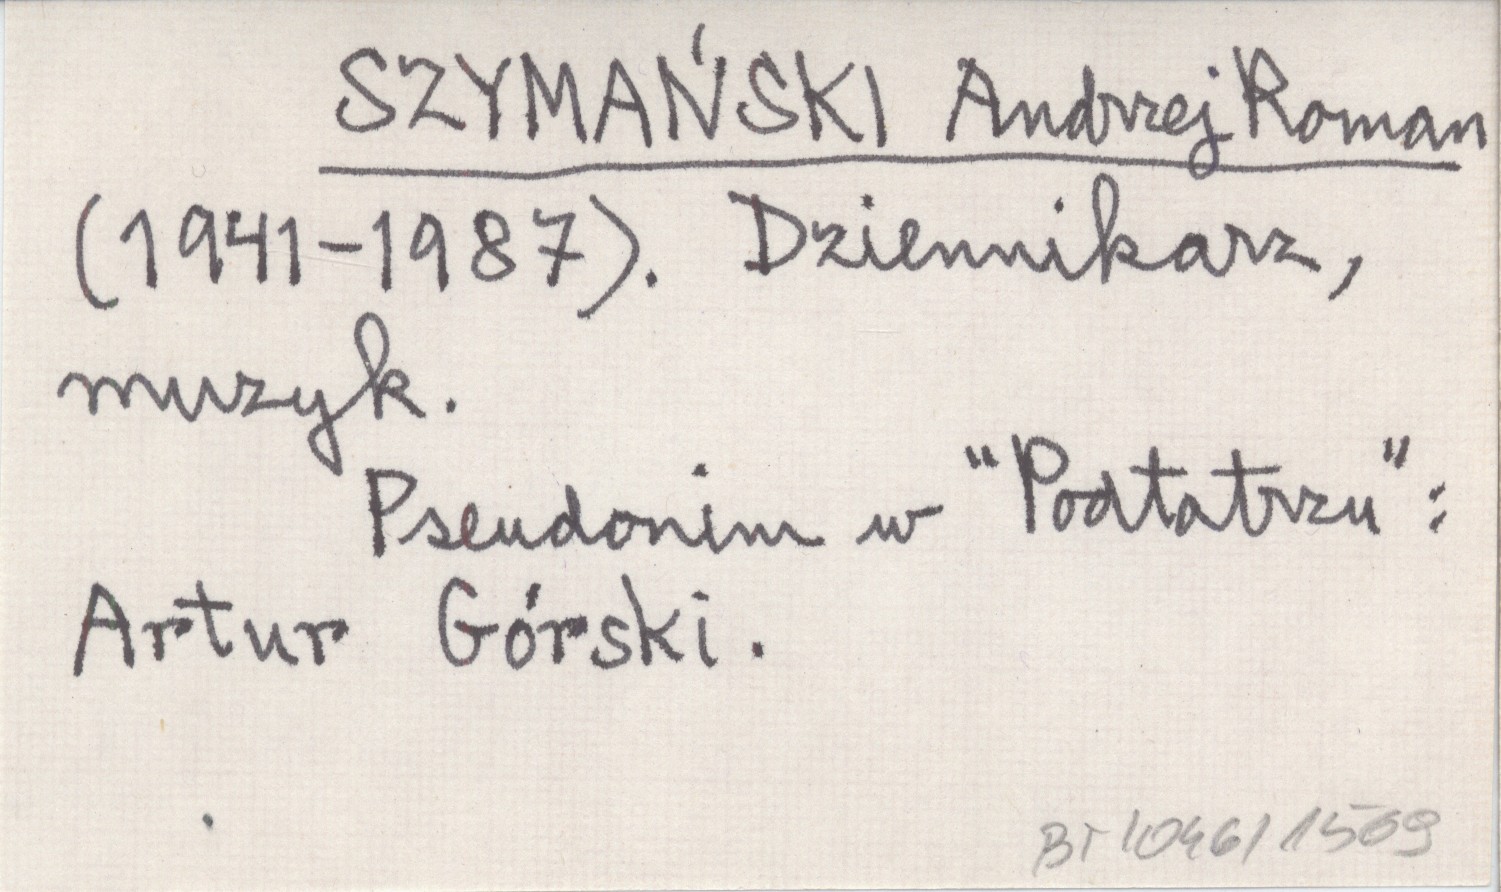 SZYMAŃSKI Andrzej Roman
(1941-1987). Dziennikarz,
muzyk.
Pseudonim w "Podtatrzu":
Artur Górski.
BT 1046/1569